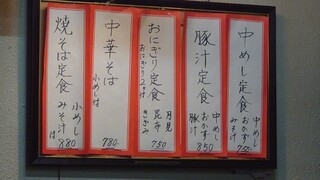 中めし定食
中めし
おかず
みそ汁
750
豚汁定食
中めし
おかず
豚汁
850
おにぎり定食
おにぎり2ヶ付
月見
昆布
きざみ
750
中華そば
小めし付
780
焼そば定食
小めし
みそ汁
付
880